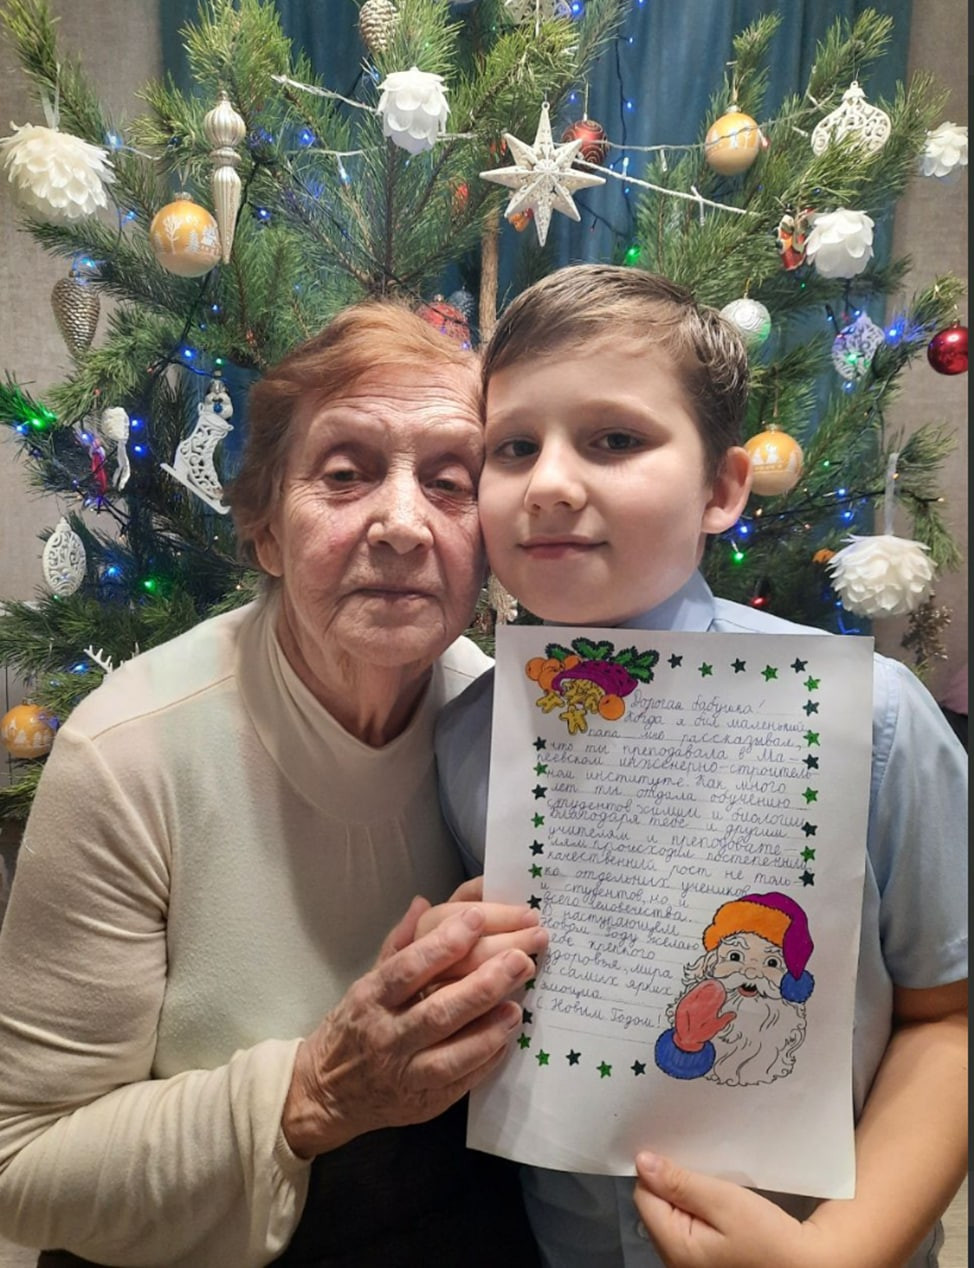 Дорогая бабушка!
Когда я был маленький,
папа мне рассказывал,
что ты преподавала в Ма-
кеевском инженерно-строитель-
ном институте. Как много
лет ты отдала обучению
студентов химии и биологии
благодаря тебе и другим
учителям и преподовате-
лям происходил постепенный
качественный рост не толь-
ко отдельных учеников
и студентов, но и
всего человечества.
В наступающем
Новом Году желаю
тебе крепкого
здоровья, мира
и самых ярких
эмоций.
С Новым Годом!